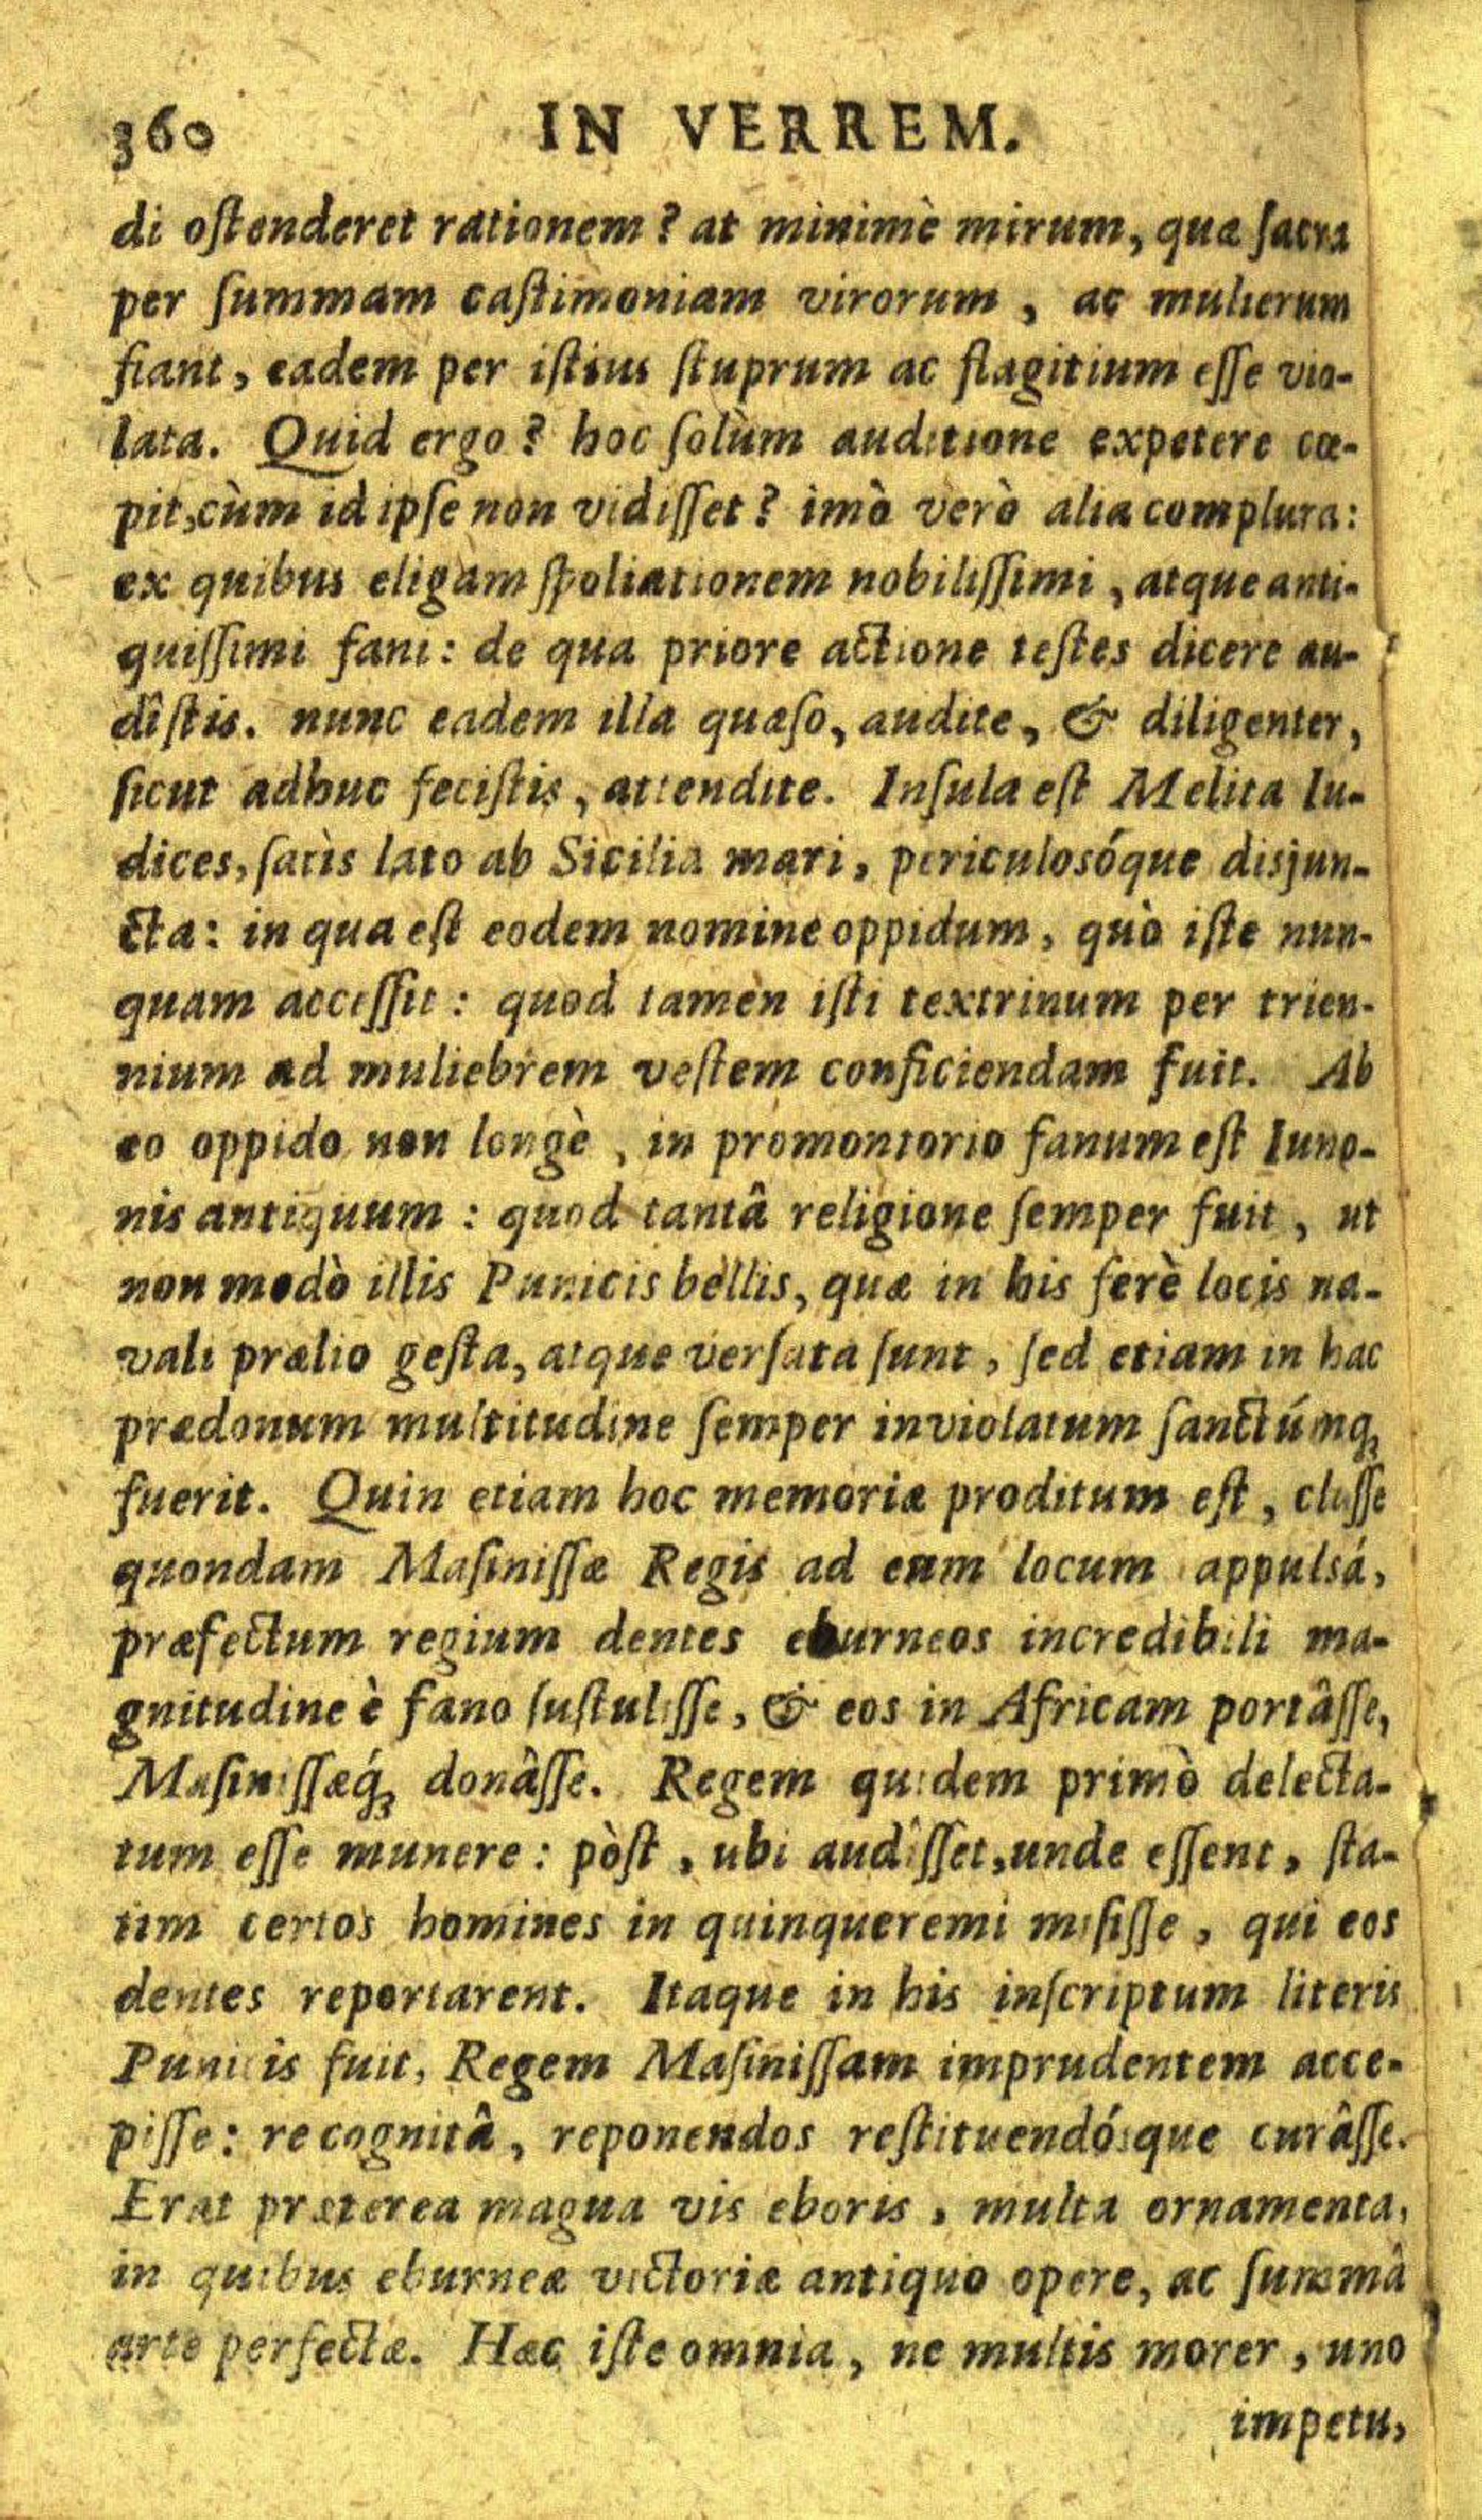 360 IN VERREM.
di oſtenderet rationem? at minimè mirum, quæ ſacra
per ſummam caſtimoniam virorum, ac mulierum
fiant, eadem per iſtius ſtuprum ac flagitium eſſe vio-
lata. Quid ergo? hoc ſolùm auditione expetere cœ-
pit, cùm id ipſe non vidiſſet? imò verò alia complura:
ex quibus eligam ſpoliationem nobiliſſimi, atque anti-
quiſſimi fani: de qua priore actione teſtes dicere au-
dîſtis. nunc eadem illa quæſo, audite, & diligenter,
ſicut adhuc feciſtis, attendite. Inſula eſt Melita Iu-
dices, ſatìs lato ab Sicilia mari, periculosóque disjun-
cta: in qua eſt eodem nomine oppidum, quò iſte nun-
quam acceſſit: quod tamen iſti textrinum per trien-
nium ad muliebrem veſtem conficiendam fuit. Ab
eo oppido non longè, in promontorio fanum eſt Iuno-
nis antiquum: quod tantâ religione ſemper fuit, ut
non modò illis Punicis bellis, quæ in his ferè locis na-
vali prælio geſta, atque verſata ſunt, ſed etiam in hac
prædonum multitudine ſemper inviolatum ſanctúmq;
fuerit. Quin etiam hoc memoriæ proditum eſt, claſſe
quondam Maſiniſſæ Regis ad eum locum appulsâ,
præfectum regium dentes eburneos incredibili ma-
gnitudine è fano ſuſtuliſſe, & eos in Africam portâſſe,
Maſiniſſæq́; donâſſe. Regem quidem primò delecta-
tum eſſe munere: pòſt, ubi audîſſet, unde eſſent, ſta-
tim certos homines in quinqueremi miſiſſe, qui eos
dentes reportarent. Itaque in his inſcriptum literis
Punicis fuit, Regem Maſiniſſam imprudentem acce-
piſſe: re cognitâ, reponendos reſtituendósque curâſſe.
Erat præterea magna vis eboris, multa ornamenta,
in quibus eburneæ victoriæ antiquo opere, ac ſummâ
arte perfectæ. Hæc iſte omnia, ne multis morer, uno
impetu,